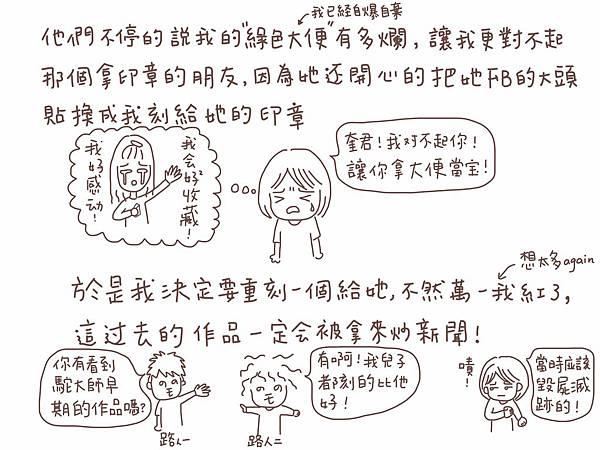 我已經自爆自棄
他們不停的說我的"綠色大便"有多爛，讓我更對不起
那個拿印章的朋友，因為她还開心的把她FB的大頭
貼換成我刻給她的印章
我会好好收藏！
我好感动！
奎君！我対不起你！
讓你拿大便當宝！
想太多again
於是我決定要重刻一個給她，不然萬一我紅了，
這过去的作品一定会被拿來炒新聞！
你有看到
駝大師早
期的作品嗎？
路人一
有啊！我兒子
都刻的比他
好！
路人二
嘖！
當時应該
毀屍滅
跡的！